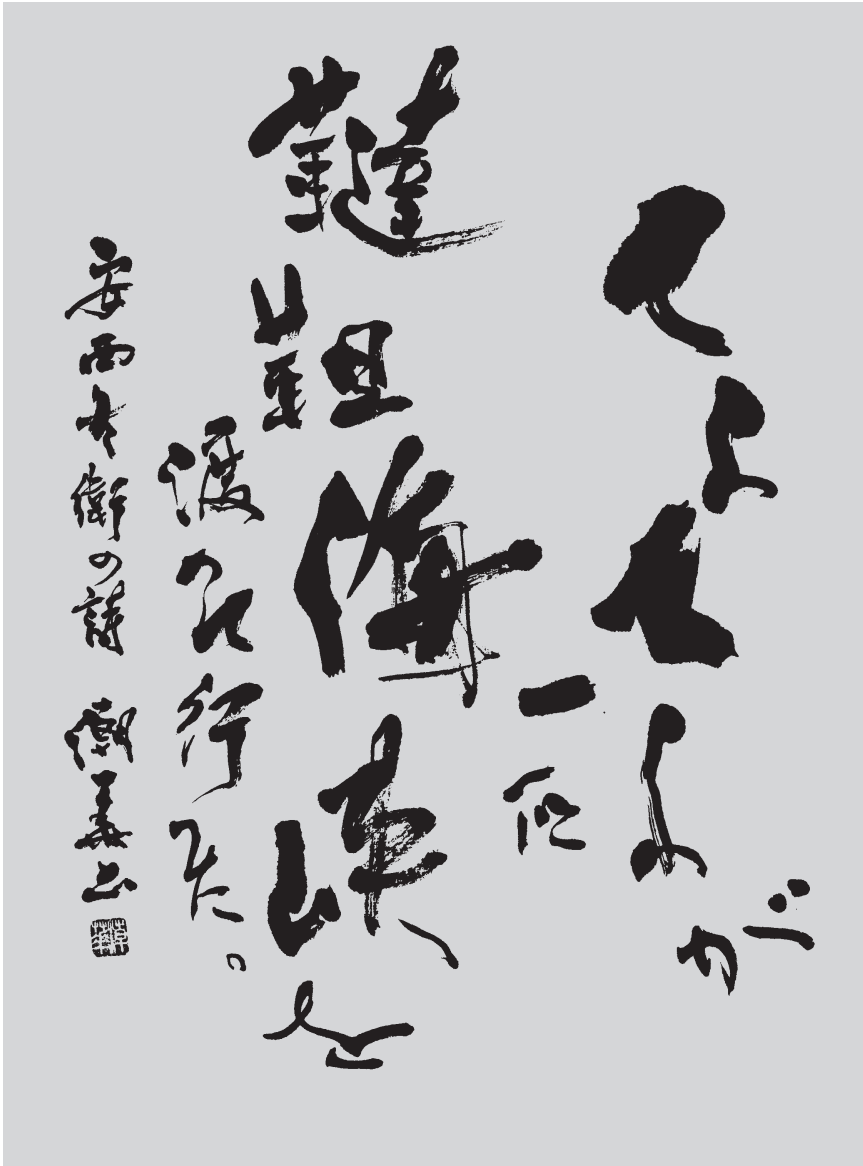 てふてふが
一匹
韃靼海峡を
渡つて行つた。
安西冬衛の詩 書